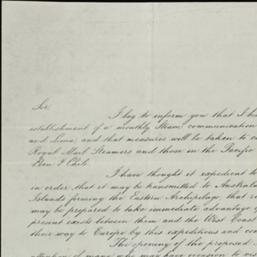 Sir,
I beg to inform you that I ha
establishment of a monthly Steam communication
and Lima, and that measures will be taken to
Royal Mail Steamers and those in the Pacific
Peru & Chili.
I have thought it expedient to
in order, that it may be transmitted to Austral
Islands forming the Eastern Archipelago, that
may be prepared to take immediate advantage
present exists between them and the West Coast
their way to Europe by this expeditious and con
The opening of the proposed
of many who may have occasion to